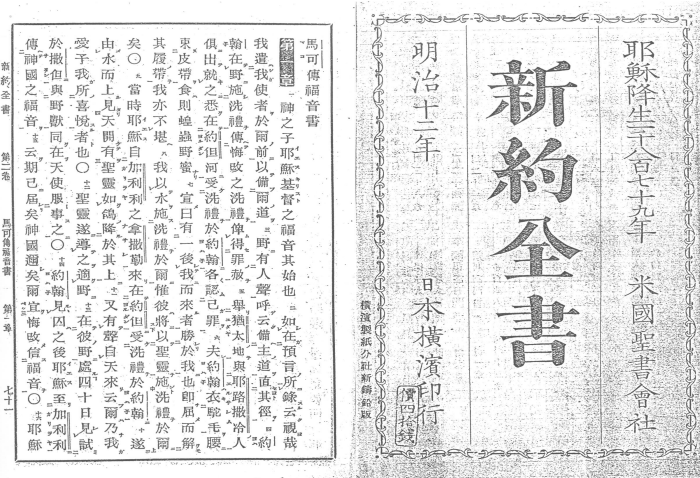 耶穌降生一千八百七十九年 米國聖書會社
新約全書
明治十二年 日本橫濱印行
價四拾錢
橫濱製紙分社新鑄鉛版
馬可傳福音書
第一章 神之子耶穌基督之福音其始也 如在預言所錄云視哉
我遣我使者於爾前以備爾道 野有人聲呼云備主道直其徑○約
翰在野施洗禮傳悔改之洗禮俾得罪赦 舉猶太地與耶路撒冷人
俱出就之悉在約但河受洗禮於約翰各認己罪 夫約翰衣駝毛腰
束皮帶食則蝗蟲野蜜 宣曰有一後我而來者勝於我也卽屈而解
其履帶我亦不堪 我以水施洗禮於爾惟彼將以聖靈施洗禮於爾
矣○ 當時耶穌自加利利之拿撒勒來在約但受洗禮於約翰 遂
由水而上見天開有聖靈如鴿降於其上 又有聲自天來云爾乃我
愛子我所喜悅者也○ 聖靈遂導之適野 在彼野處四十日見試
於撒但與野獸同在天使服事之○ 約翰見囚之後耶穌至加利利
傳神國之福音 云期已屆矣神國邇矣爾宜悔改信福音○ 耶穌
新約全書 第二卷 馬可傳福音書 第一章 七十一